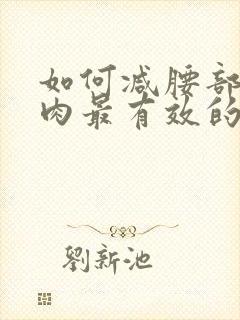 如何减腰部
肉最有效的
劉新池